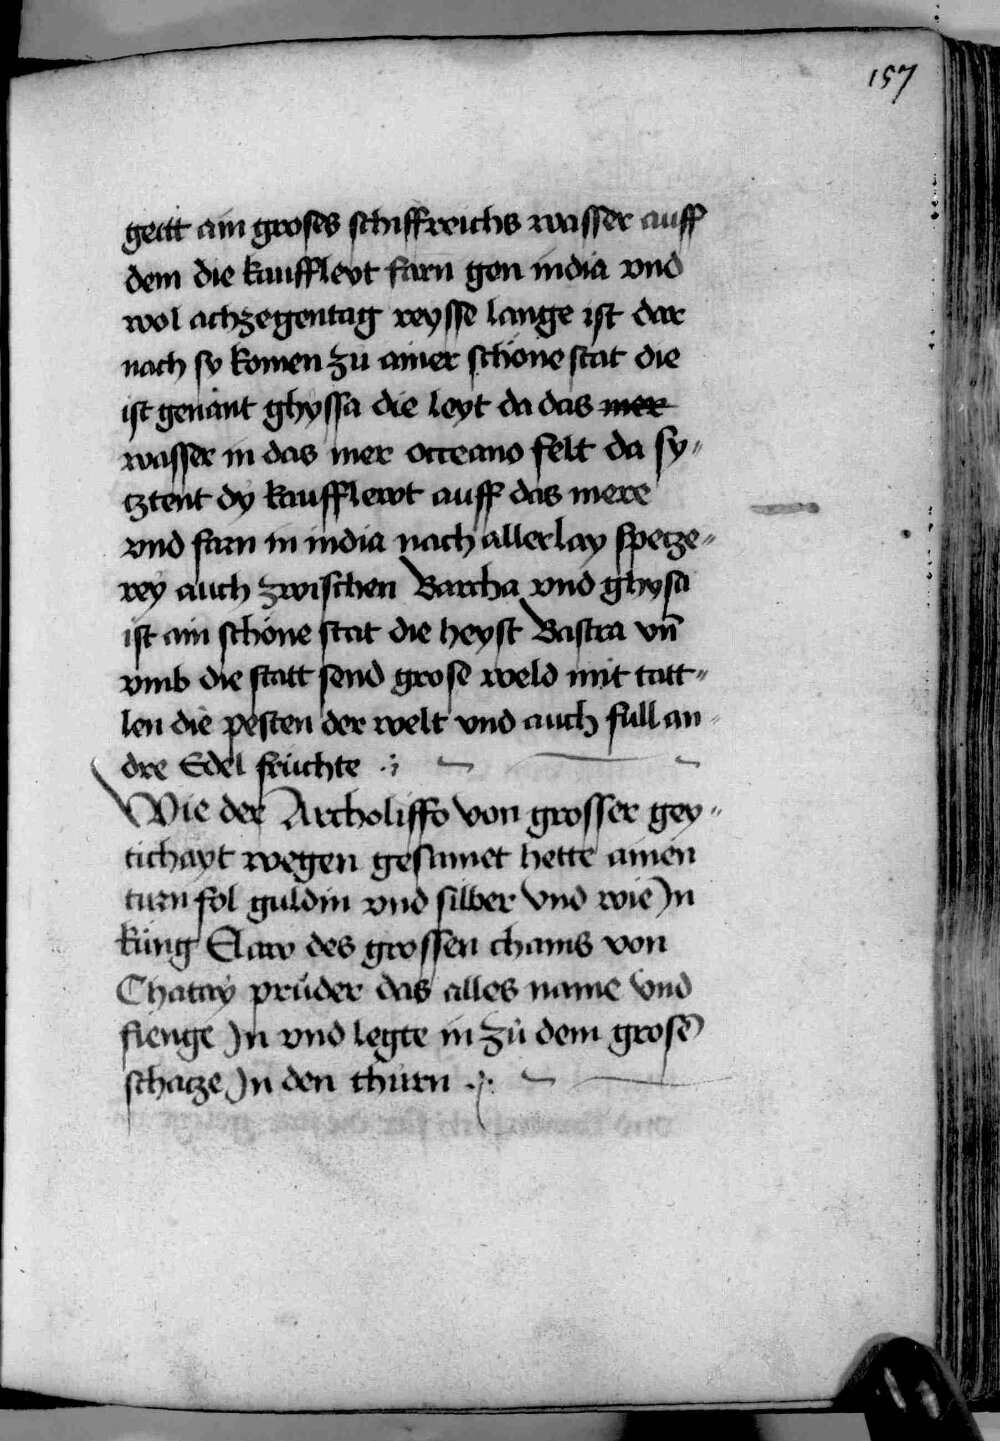 157
geitt ain groses schiffreichs wasser auff
dem die kauffleyt farn gen india vnd
wol achzegentag reysse lange ist dar
nach sy komen zu ainer schöne stat die
ist genant ghyssa die leyt da das mer
wasser in das mer occeano felt da sy„
tztent dy kaufflewt auff das mere
vnd farn in india nach allerlay spetze„
rey auch zwischen Barcha vnd ghysa
ist ain schöne stat die heyst Bastra vn̄
vmb die statt send grose weld mit tatt„
len die pesten der welt vnd auch full an„
dre Edel früchte
Wie der Archoliffo von grosser gey„
tichayt wegen gesamet hette ainen
turn fol guldin vnd silber vnd wie In
küng Elaw des grossen chams von
Chatay prüder das alles name vnd
fienge In vnd legte in zů dem grosē
schatze In den thurn